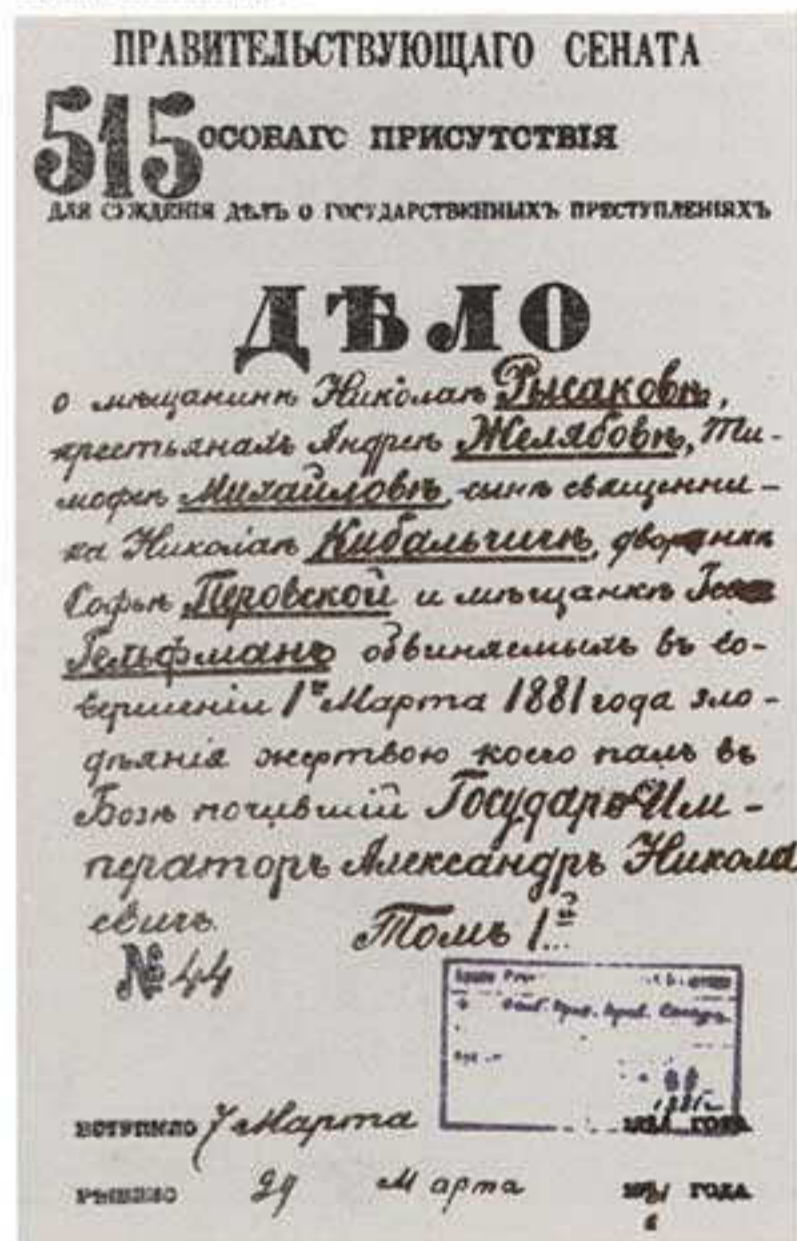 ПРАВИТЕЛЬСТВУЮЩАГО СЕНАТА
515 ОСОБАГО ПРИСУТСТВІЯ
ДЛЯ СУЖДЕНІЯ ДѢЛЪ О ГОСУДАРСТВЕННЫХЪ ПРЕСТУПЛЕНІЯХЪ
ДѢЛО
о мѣщанинѣ Николаѣ Рысаковѣ,
крестьянахъ Андреѣ Желябовѣ, Ти-
мофеѣ Михайловѣ, сынѣ священни-
ка Николаѣ Кибальчичѣ, дворянкѣ
Софьѣ Перовской и мѣщанкѣ
Гельфманъ обвиняемыхъ въ со-
вершеніи 1го Марта 1881 года зло-
дѣянія жертвою коего палъ въ
Бозѣ почившій Государь Им-
ператоръ Александръ Никола
евичъ.
Томъ 1й
№ 44
Особ. Прис. Прав. Сената
1881
ВСТУПИЛО 7 Марта ГОДА
РѢШЕНО 29 Марта ГОДА